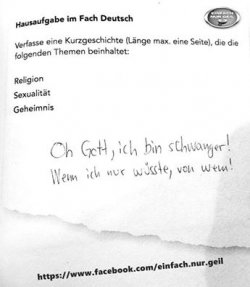 Hausaufgabe im Fach Deutsch
EINFACH
NUR GEIL
Verfasse eine Kurzgeschichte (Länge max. eine Seite), die die
folgenden Themen beinhaltet:
Religion
Sexualität
Geheimnis
Oh Gott, ich bin schwanger!
Wenn ich nur wüsste, von wem!
https://www.facebook.com/einfach.nur.geil